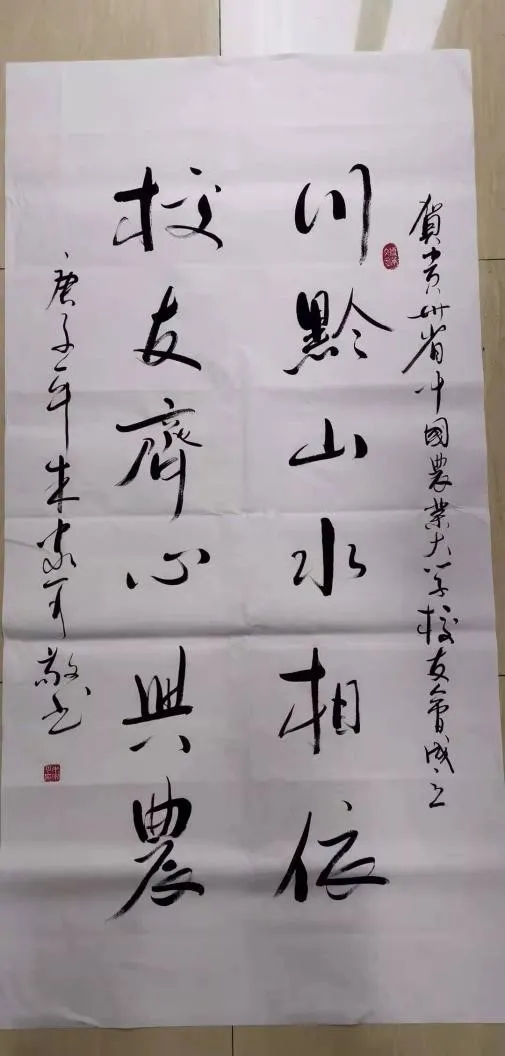 賀貴州省中國農業大學校友會成立
川黔山水相依
校友齊心興農
庚子年朱家可敬书